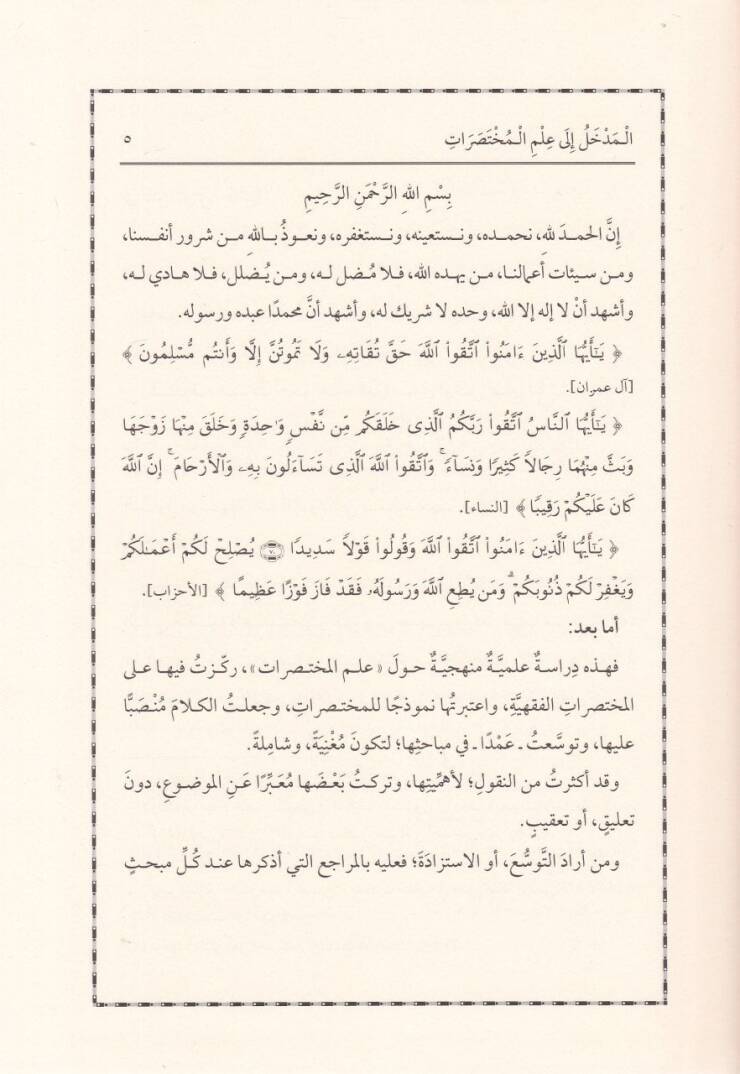 الْـمَدْخَلُ إِلَى عِلْمِ الْـمُخْتَصَرَاتِ ٥
بِسْمِ اللهِ الرَّحْمَنِ الرَّحِيمِ
إنَّ الحمدَ للهِ، نحمده، ونستعينه، ونستغفره، ونعوذُ باللهِ من شرور أنفسنا،
ومن سيئات أعمالنا، من يهده الله، فلا مُضل له، ومن يُضلل، فلا هادي له،
وأشهد أنْ لا إله إلا الله، وحده لا شريك له، وأشهد أنَّ محمدًا عبده ورسوله.
﴿ يَـٰٓأَيُّهَا ٱلَّذِينَ ءَامَنُوا۟ ٱتَّقُوا۟ ٱللَّهَ حَقَّ تُقَاتِهِۦ وَلَا تَمُوتُنَّ إِلَّا وَأَنتُم مُّسْلِمُونَ ﴾
[آل عمران].
﴿ يَـٰٓأَيُّهَا ٱلنَّاسُ ٱتَّقُوا۟ رَبَّكُمُ ٱلَّذِى خَلَقَكُم مِّن نَّفْسٍ وَٰحِدَةٍ وَخَلَقَ مِنْهَا زَوْجَهَا
وَبَثَّ مِنْهُمَا رِجَالًا كَثِيرًا وَنِسَآءً ۚ وَٱتَّقُوا۟ ٱللَّهَ ٱلَّذِى تَسَآءَلُونَ بِهِۦ وَٱلْأَرْحَامَ ۚ إِنَّ ٱللَّهَ
كَانَ عَلَيْكُمْ رَقِيبًا ﴾ [النساء].
﴿ يَـٰٓأَيُّهَا ٱلَّذِينَ ءَامَنُوا۟ ٱتَّقُوا۟ ٱللَّهَ وَقُولُوا۟ قَوْلًا سَدِيدًا ٧٠ يُصْلِحْ لَكُمْ أَعْمَـٰلَكُمْ
وَيَغْفِرْ لَكُمْ ذُنُوبَكُمْ ۗ وَمَن يُطِعِ ٱللَّهَ وَرَسُولَهُۥ فَقَدْ فَازَ فَوْزًا عَظِيمًا ﴾ [الأحزاب].
أما بعد:
فهذه دِراسةٌ علميَّةٌ منهجيَّةٌ حولَ «علم المختصرات»، ركّزتُ فيها على
المختصراتِ الفقهيَّةِ، واعتبرتُها نموذجًا للمختصراتِ، وجعلتُ الكلامَ مُنْصَبًّا
عليها، وتوسَّعتُ ـ عَمْدًا ـ في مباحثِها؛ لتكونَ مُغْنِيَةً، وشامِلةً.
وقد أكثرتُ من النقولِ؛ لأهمِّيتِها، وتركتُ بَعْضَها مُعَبِّرًا عَنِ الموضوعِ، دونَ
تعليقٍ، أو تعقيبٍ.
ومن أرادَ التَّوسُّعَ، أو الاستزادَةَ؛ فعليه بالمراجع التي أذكرها عند كُلِّ مبحثٍ